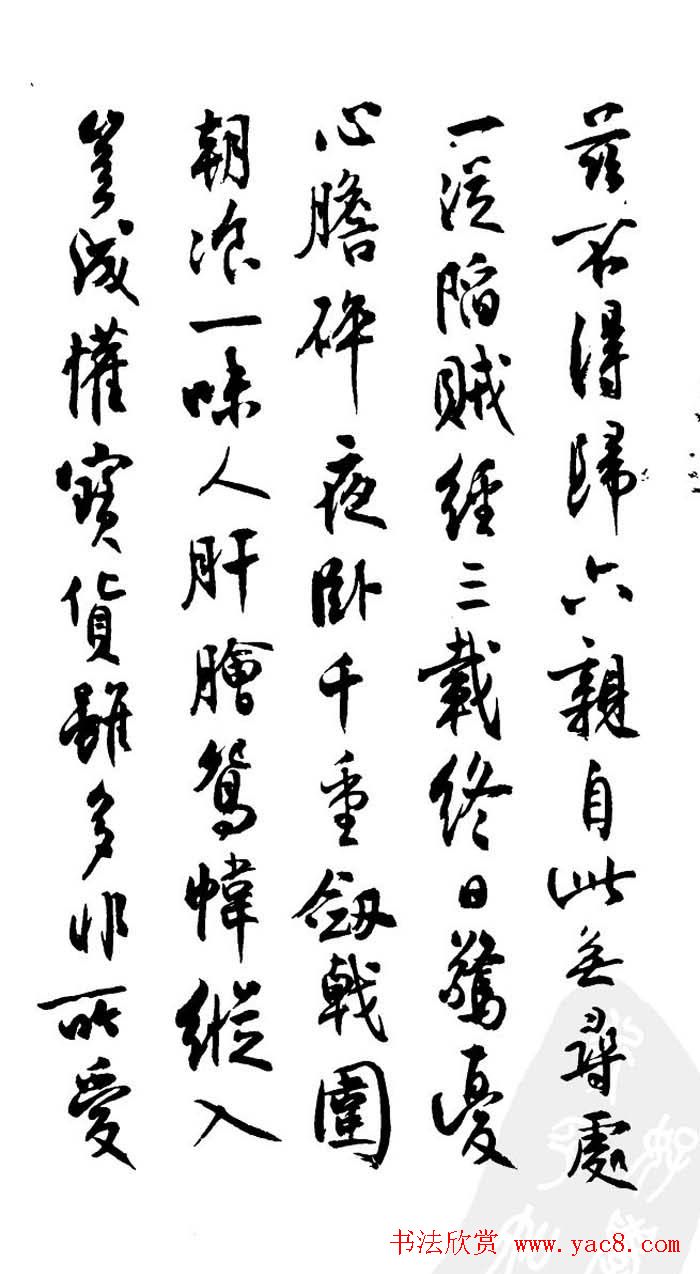 兹不得歸六親自此無尋處
一從陷賊經三載終日驚憂
心膽碎夜卧千重劔戟圍
朝飡一味人肝膾鴛幃縱入
豈成懽寶貨雖多非所愛
书法欣赏 www.yac8.com